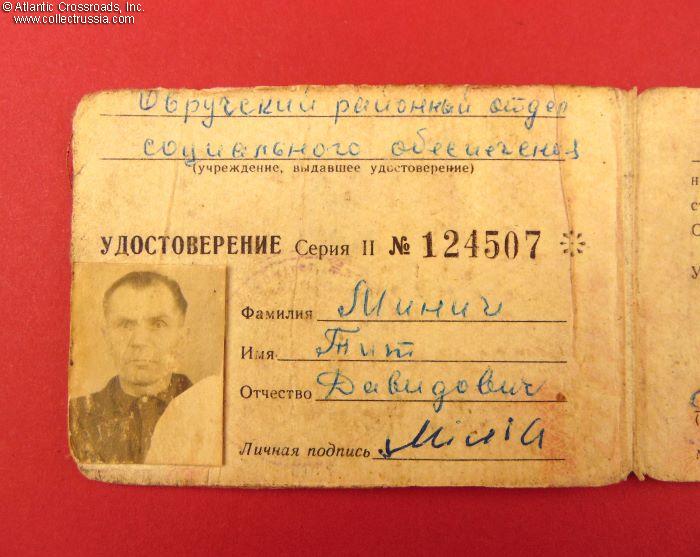 © Atlantic Crossroads, Inc.
www.collectrussia.com
Овручский районный отдел
социального обеспечения
(учреждение, выдавшее удостоверение)
УДОСТОВЕРЕНИЕ Серия II № 124507
Фамилия Минич
Имя Тит
Отчество Давидович
Личная подпись